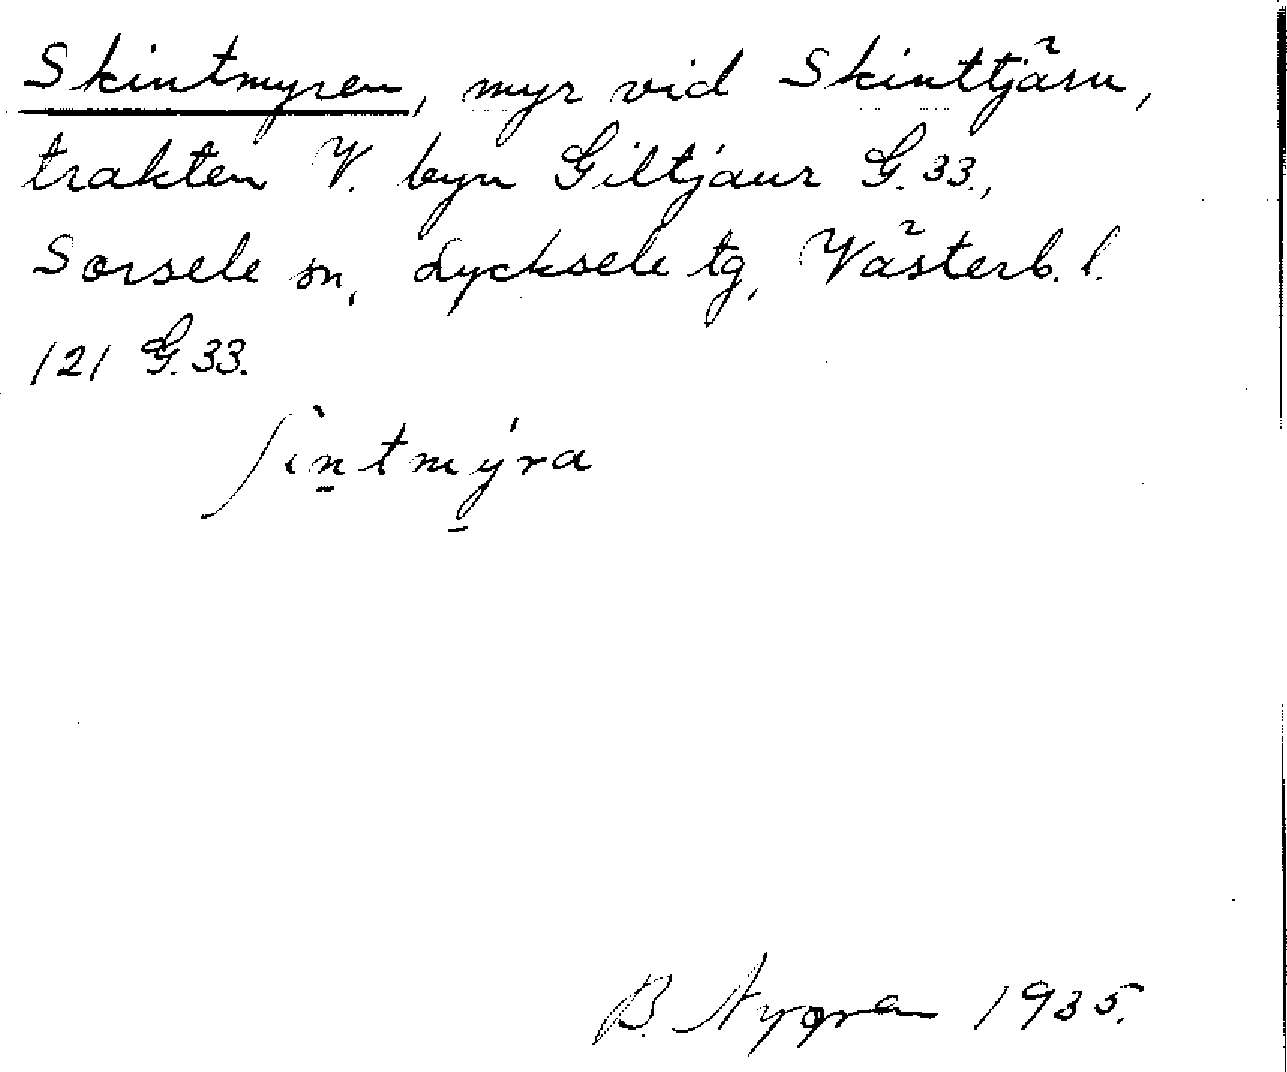 Skintmyren, myr vid Skinttjärn,
trakten V. byn Giltjaur G.33.,
Sorsele sn, Lycksele tg, Västerb. l.
121 G.33.
ʃìn̠tmý̠ra
B. Nygren 1935.